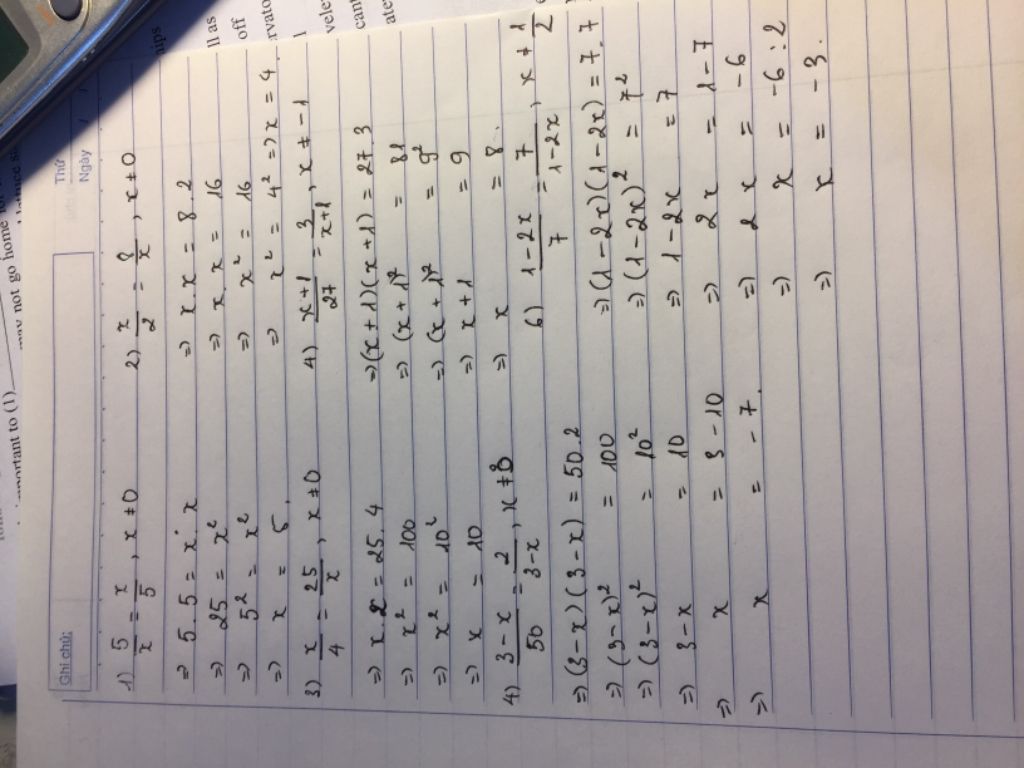 Ghi chú:
Thứ
Ngày
1) 5/x = x/5, x ≠ 0
=> 5.5 = x.x
=> 25 = x²
=> 5² = x²
=> x = 5.
2) x/2 = 8/x, x ≠ 0
=> x x = 8.2
=> x.x = 16
=> x² = 16
=> x² = 4² => x = 4.
3) x/4 = 25/x, x ≠ 0
=> x 2 = 25.4
=> x² = 100
=> x² = 10²
=> x = 10
4) x+1/27 = 3/x+1, x ≠ -1
=> (x+1)(x+1) = 27.3
=> (x+1)² = 81
=> (x+1)² = 9²
=> x+1 = 9
=> x = 8.
4) 3-x/50 = 2/3-x, x ≠
=> (3-x)(3-x) = 50.2
=> (3-x)² = 100
=> (3-x)² = 10²
=> 3-x = 10
=> x = 3-10
=> x = -7.
6) 1-2x/7 = 7/1-2x, x ≠ 1/2
=> (1-2x)(1-2x) = 7.7
=> (1-2x)² = 7²
=> 1-2x = 7
=> 2x = 1-7
=> 2x = -6
=> x = -6:2
=> x = -3.
important to (1)
may not go home
ll as
off